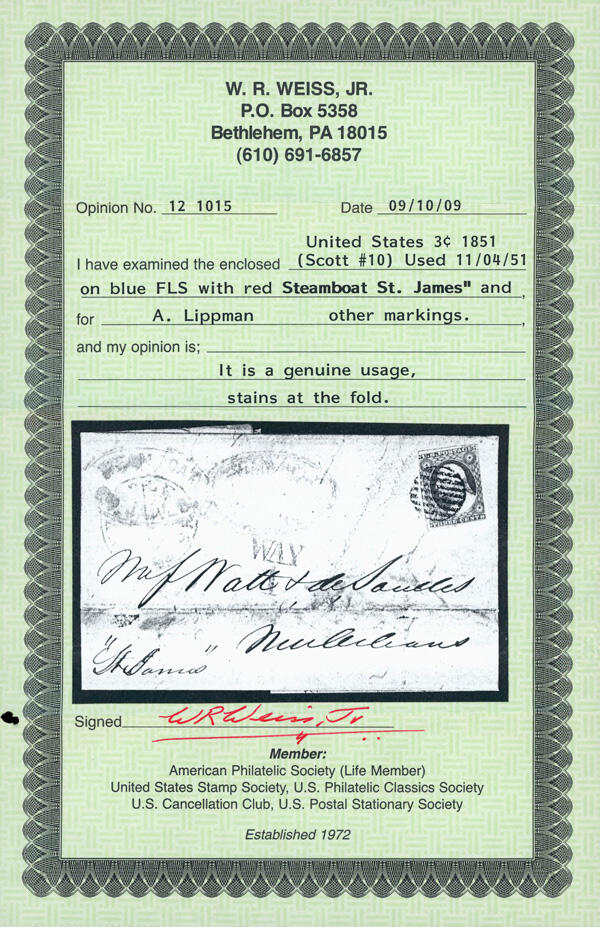 W. R. WEISS, JR.
P.O. Box 5358
Bethlehem, PA 18015
(610) 691-6857
Opinion No. 12 1015 Date 09/10/09
United States 3¢ 1851
I have examined the enclosed (Scott #10) Used 11/04/51
on blue FLS with red Steamboat St. James" and,
for A. Lippman other markings.,
and my opinion is;
It is a genuine usage,
stains at the fold.
THREE CENTS
WAY
Watt & de Saules
New Orleans
"St. James"
Signed WR Weiss, Jr
Member:
American Philatelic Society (Life Member)
United States Stamp Society, U.S. Philatelic Classics Society
U.S. Cancellation Club, U.S. Postal Stationary Society
Established 1972